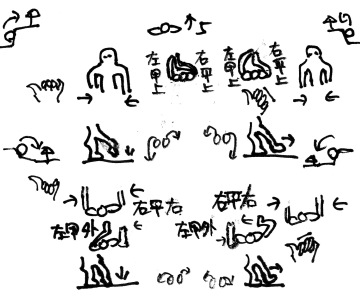 左甲上
右平上
左甲上
右平上
右平右
右平右
左甲外
左甲外